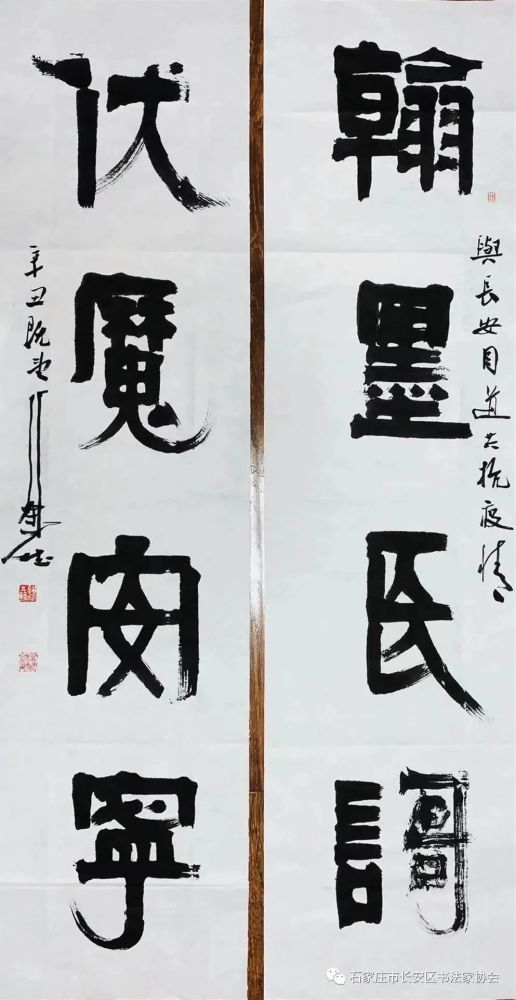 翰墨民謌
與長安同道共抗疫情
伏魔安寧
辛丑
石家庄市长安区书法家协会